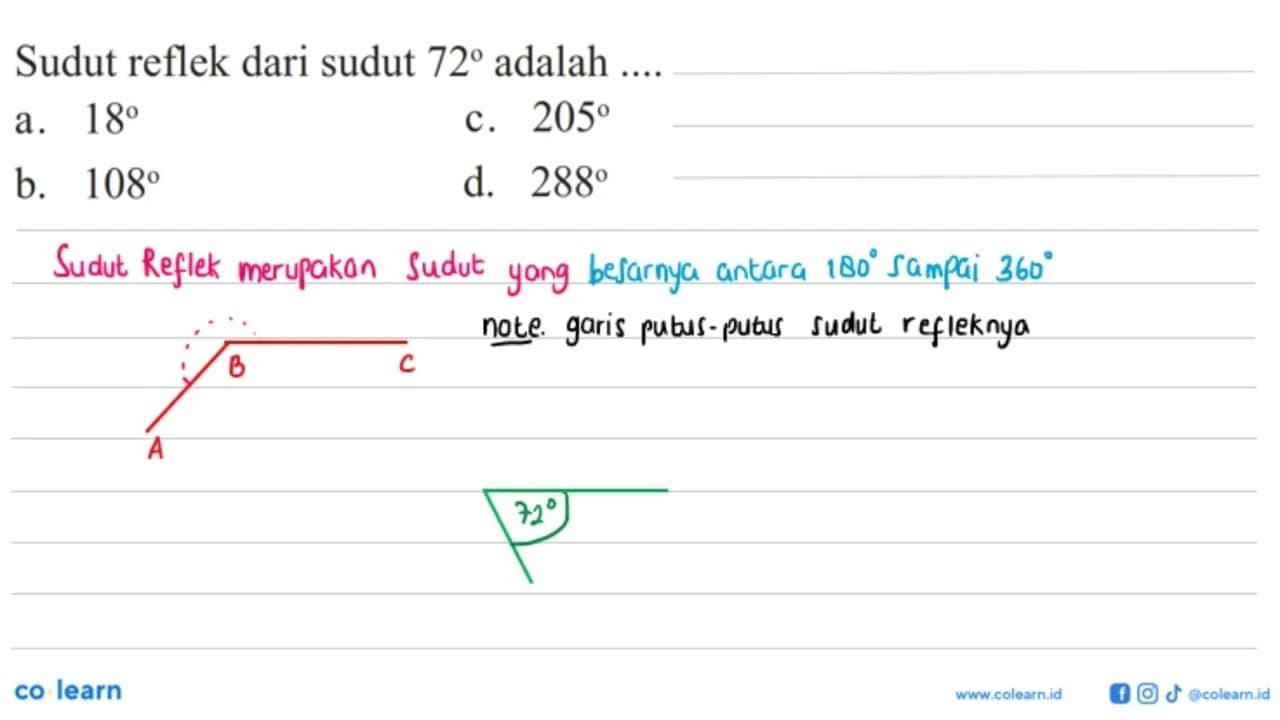 Sudut reflek dari sudut 72° adalah ....
a. 18° c. 205°
b. 108° d. 288°
Sudut Reflek merupakan Sudut yang besarnya antara 180° sampai 360°
note. garis putus-putus sudut refleknya
B C
A
72°
co learn www.colearn.id @colearn.id